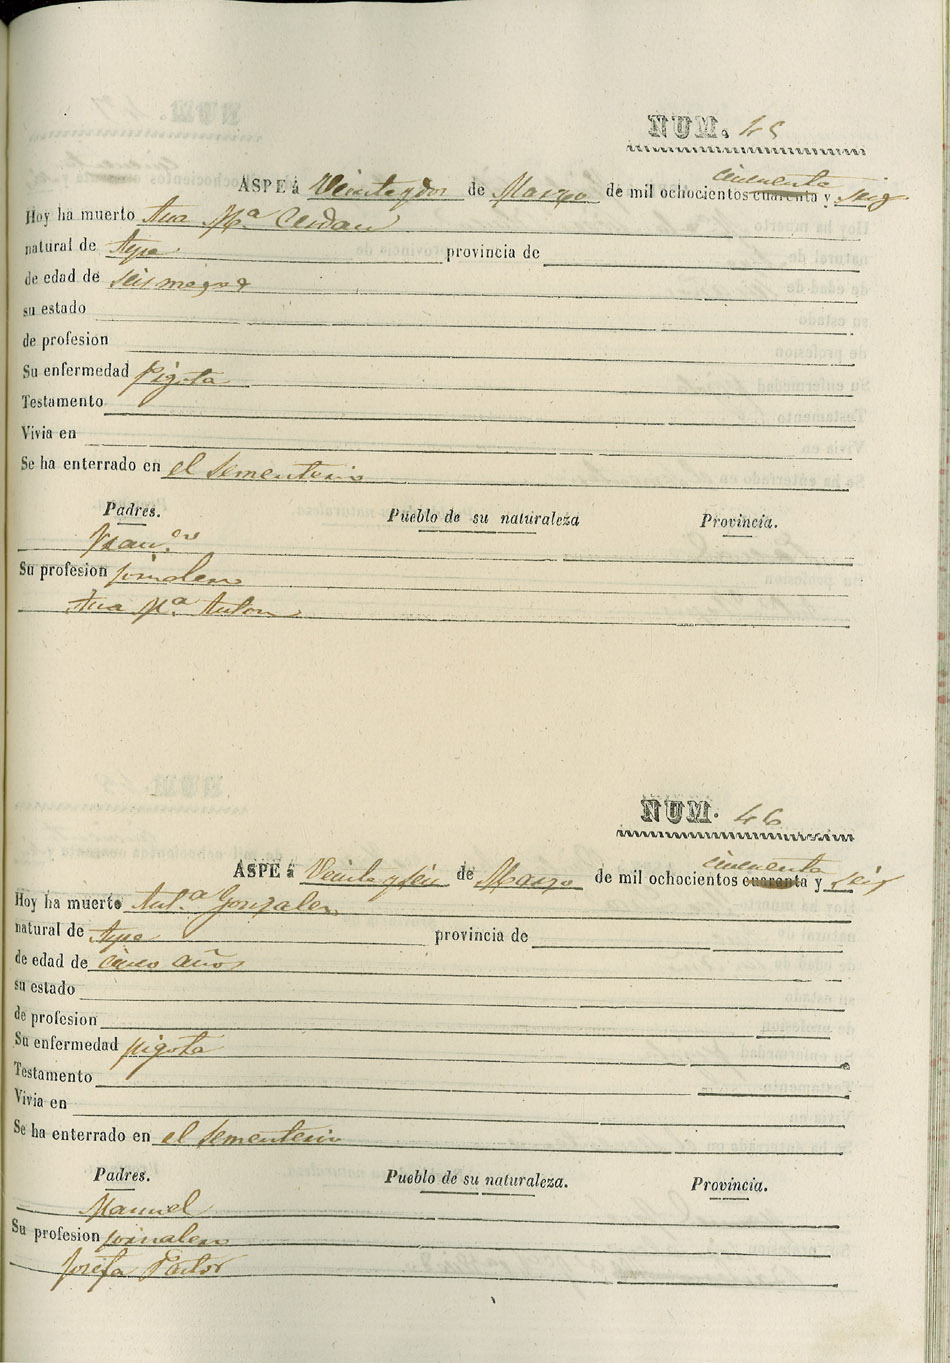 NUM. 45
ASPE á Veinteydos de Marzo de mil ochocientos cincuenta cuarenta y seis
Hoy ha muerto Ana Mª Cerdan
natural de Aspe provincia de
de edad de seis meses
su estado
de profesion
Su enfermedad Pigota
Testamento
Vivia en
Se ha enterrado en el sementerio
Padres. Pueblo de su naturaleza Provincia.
Franco
Su profesion jornalero
Ana Mª Anton
NUM. 46
ASPE á Veinte y seis de Marzo de mil ochocientos cincuenta cuarenta y seis
Hoy ha muerto Antª Gonzalez
natural de Aspe provincia de
de edad de cinco años
su estado
de profesion
Su enfermedad pigota
Testamento
Vivia en
Se ha enterrado en el sementerio
Padres. Pueblo de su naturaleza. Provincia.
Manuel
Su profesion jornalero
Josefa Pastor